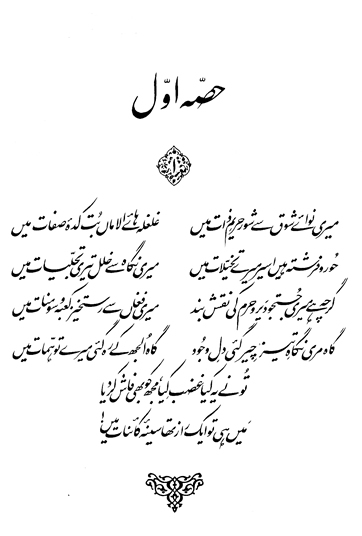 حصہ اوّل
۱
میری نوائے شوق سے شور حریمِ ذات میں غلغلہ ہائے الاماں بُت کدۂ صفات میں
حور و فرشتہ ہیں اسیر میرے تخیّلات میں میری نگاہ سے خلل تیری تجلّیات میں
گرچہ ہے میری جستجو دیر و حرم کی نقش بند میری فغاں سے رستخیز کعبہ و سومنات میں
گاہ مری نگاہِ تیز چیر گئی دلِ وجود گاہ اُلجھ کے رہ گئی میرے توہّمات میں
تُو نے یہ کیا غضب کیا، مجھ کو بھی فاش کر دیا
مَیں ہی تو ایک راز تھا سینۂ کائنات میں!